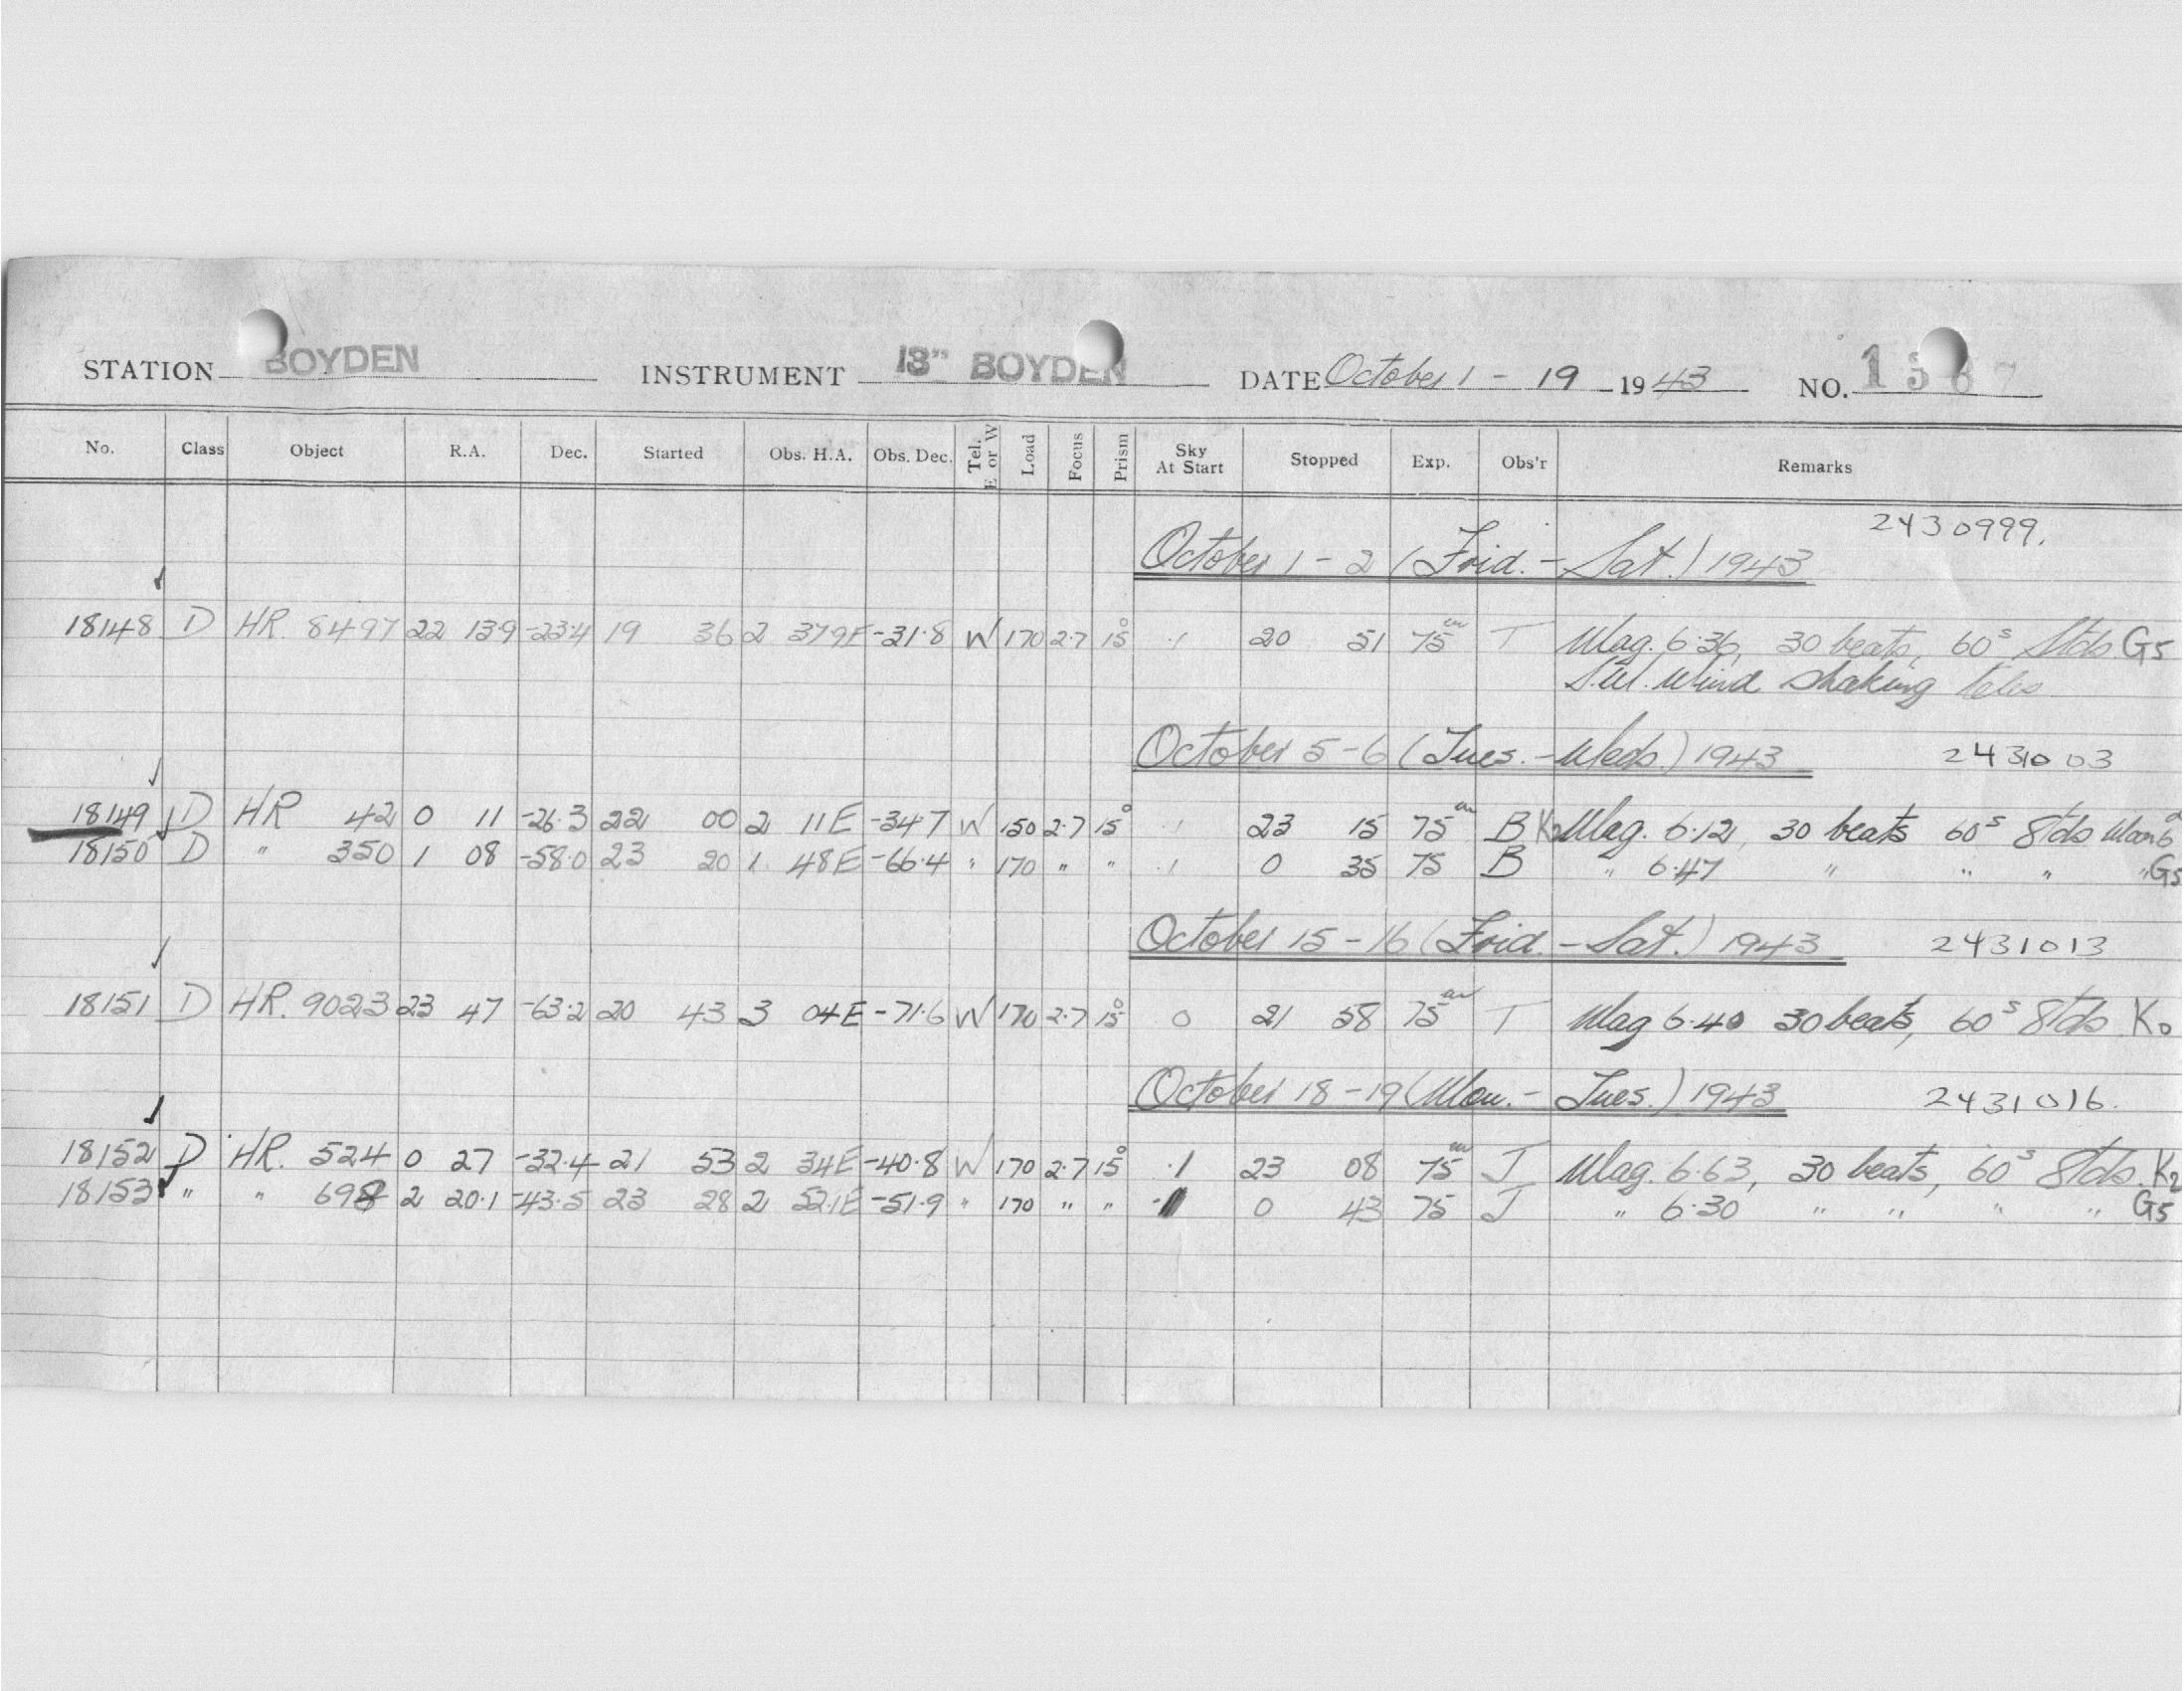 STATION BOYDEN INSTRUMENT 13" BOYDEN DATE October 1 - 19 - 1943 NO. 1567
No. Class Object R.A. Dec. Started Obs. H.A. Obs. Dec. Tel. E or W Load Focus Prism Sky At Start Stopped Exp. Obs'r Remarks
2430999.
October 1 - 2 (Frid. - Sat.) 1943
18148 D HR. 8497 22 13.9 -23.4 19 36 2 37.9E -31.8 W 170 2.7 15° .1 20 51 75m T Mag. 6.36, 30 beats, 60s Stds. G5
S.W. Wind shaking teles
October 5 - 6 (Tues. - Weds.) 1943 2431003
18149 D HR 42 0 11 -26.3 22 00 2 11E -34.7 W 150 2.7 15° .1 23 15 75m B K2 Mag. 6.12, 30 beats 60s Stds Moon 6
18150 D " 350 1 08 -58.0 23 20 1 48E -66.4 " 170 " " .1 0 35 75 B " 6.47 " " " " G5
October 15 - 16 (Frid. - Sat.) 1943 2431013
18151 D HR. 9023 23 47 -63.2 20 43 3 04E -71.6 W 170 2.7 15° 0 21 58 75m T Mag 6.40 30 beats, 60s Stds K0
October 18 - 19 (Mon. - Tues.) 1943 2431016.
18152 D HR. 524 0 27 -32.4 21 53 2 34E -40.8 W 170 2.7 15° .1 23 08 75m J Mag. 6.63, 30 beats, 60s Stds. K2
18153 " " 698 2 20.1 -43.5 23 28 2 52.1E -51.9 " 170 " " 0 43 75 J " 6.30 " " " " G5